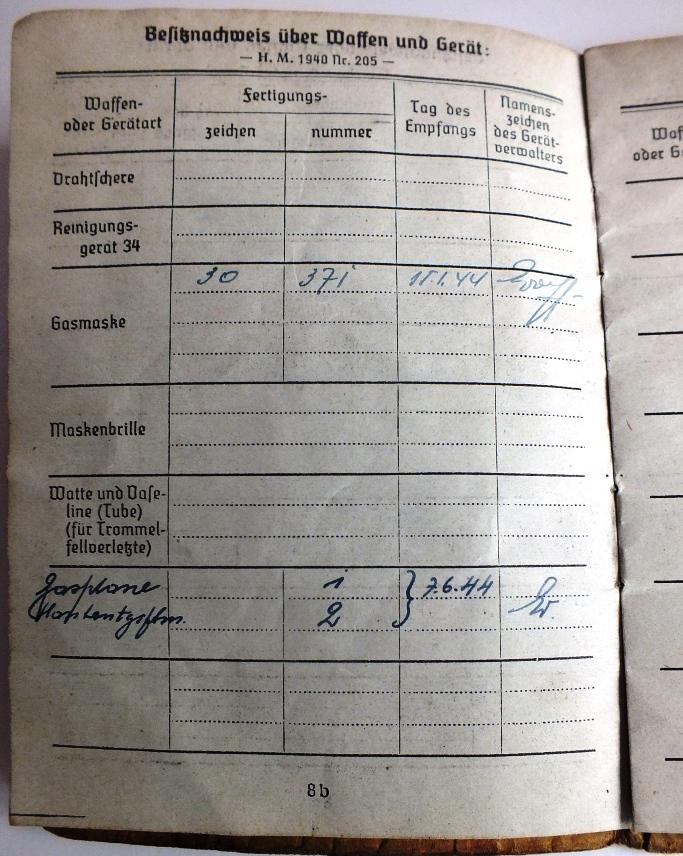 Besitznachweis über Waffen und Gerät:
— H. M. 1940 Nr. 205 —
Waffen-
oder Gerätart
Fertigungs-
zeichen
nummer
Tag des
Empfangs
Namens-
zeichen
des Gerät-
verwalters
Drahtschere
Reinigungs-
gerät 34
Gasmaske
30 371
Maskenbrille
Watte und Vase-
line (Tube)
(für Trommel-
fellverletzte)
Gasplane 1 } 7.6.44
2
8b
Waf
oder G